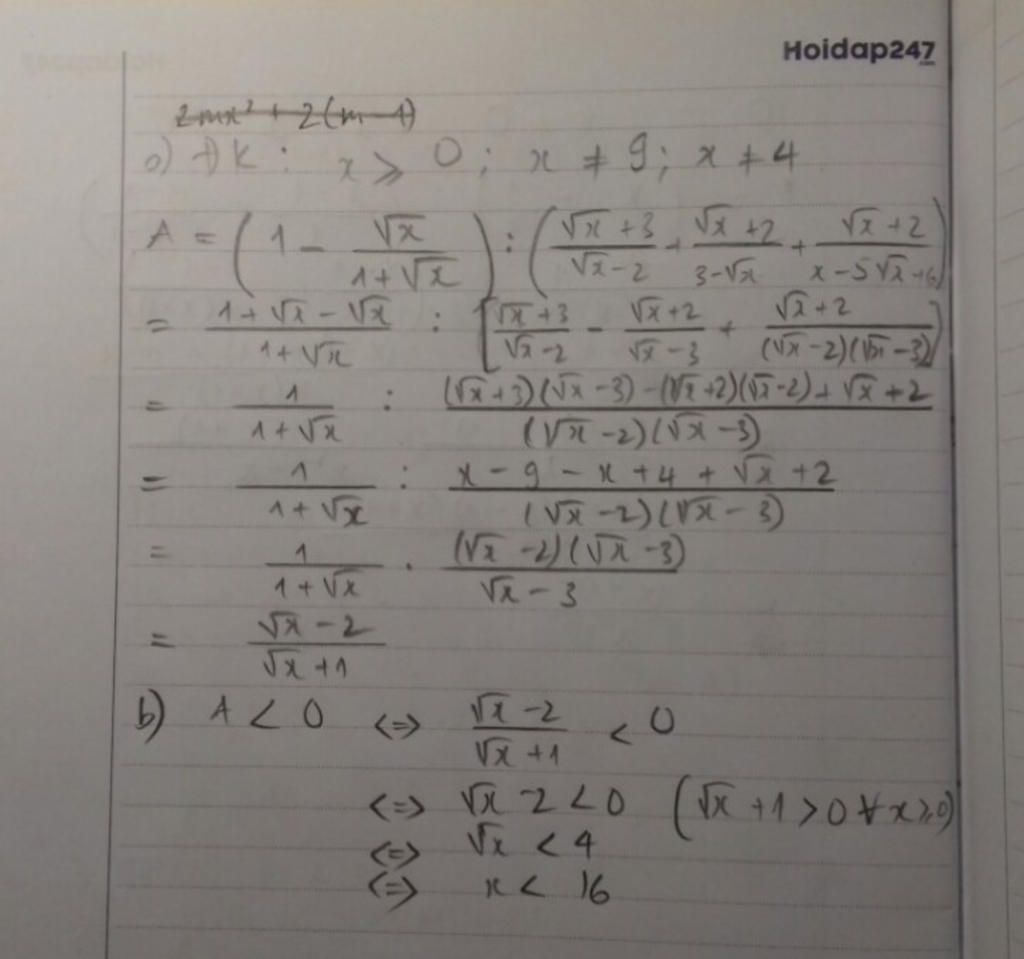 Hoidap247
2mx² + 2(m-1)
a) ĐK: x ⩾ 0; x ≠ 9; x ≠ 4
A = (1 - √x/(1+√x)) : ((√x+3)/(√x-2) + (√x+2)/(3-√x) + (√x+2)/(x-5√x+6))
= (1+√x-√x)/(1+√x) : [(√x+3)/(√x-2) - (√x+2)/(√x-3) + (√x+2)/((√x-2)(√x-3))]
= 1/(1+√x) : ((√x+3)(√x-3)-(√x+2)(√x-2)+√x+2)/((√x-2)(√x-3))
= 1/(1+√x) : (x-9-x+4+√x+2)/((√x-2)(√x-3))
= 1/(1+√x) . ((√x-2)(√x-3))/(√x-3)
= (√x-2)/(√x+1)
b) A < 0 <=> (√x-2)/(√x+1) < 0
<=> √x - 2 < 0 (√x + 1 > 0 ∀ x ⩾ 0)
<=> √x < 4
<=> x < 16